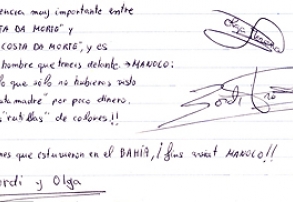 encia muy importante entre
TA DA MORTE" y
COSTA DA MORTE", y es
hombre que tenéis delante → MANOLO:
lo que sólo no hubieras visto
madre" por poco dinero.
"rutillas" de colores!!
nes que estuvieron en el BAHÍA, ¡fins aviat MANOLO!!
ordi y Olga